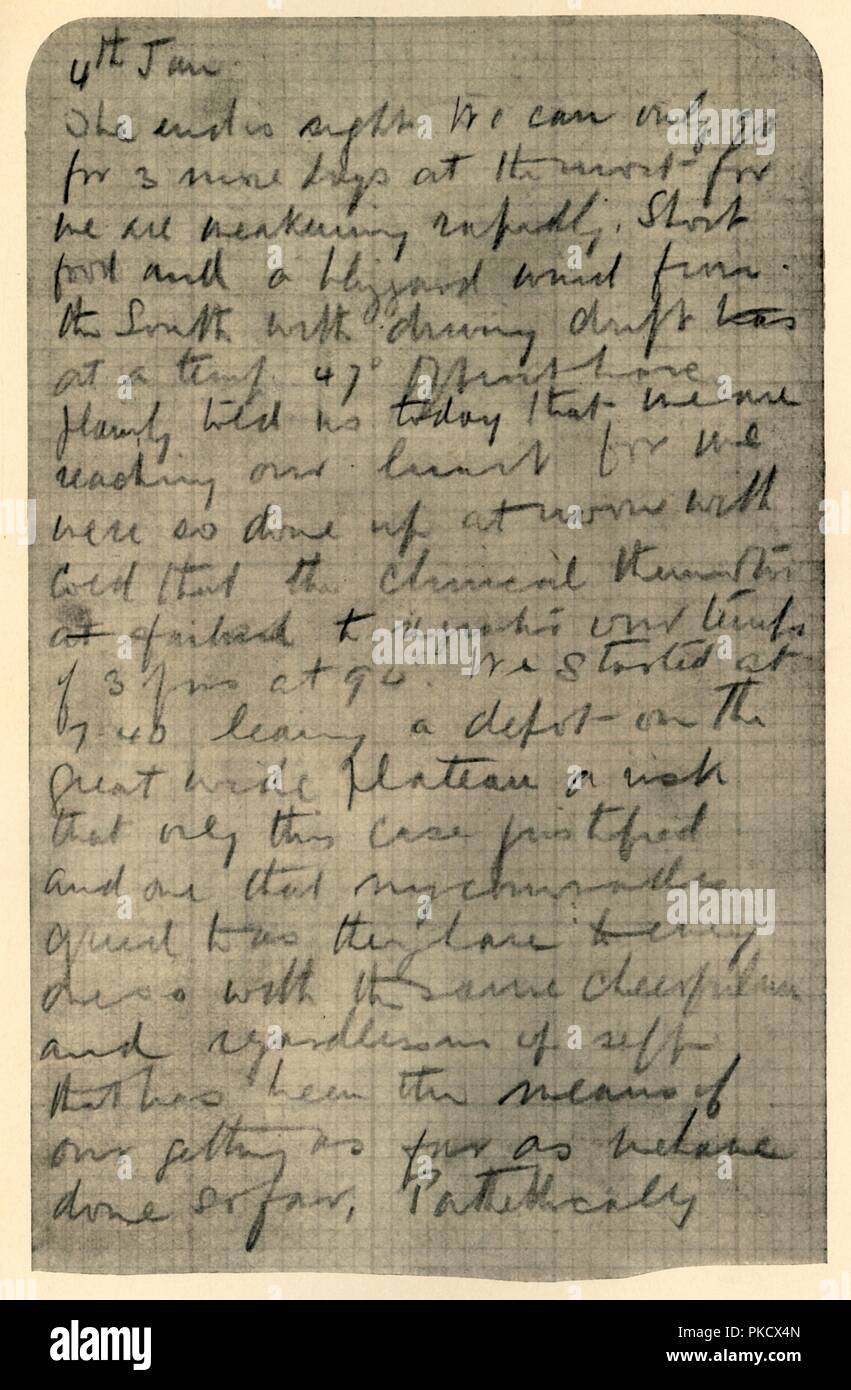 4th Jan
The end is sight. We can only go
for 3 more days at the most for
we are weakening rapidly. Short
food and a blizzard wind from
the South with driving drift has
at a temp. 47° of frost have
plainly told us today that we are
reaching our limit for we
were so done up at noon with
cold that the clinical thermometer
at failed to register our temps
of 3 of us at 94°. We started at
7 40 leaving a depot on the
great wide plateau a risk
that only this case justified
and one that my comrades
agreed to as they have to every
one so with the same cheerfulness
and regardlessness of self
that has been the means of
our getting as far as we have
done so far, Pathetically
alamy
Image ID: PKCX4N
www.alamy.com